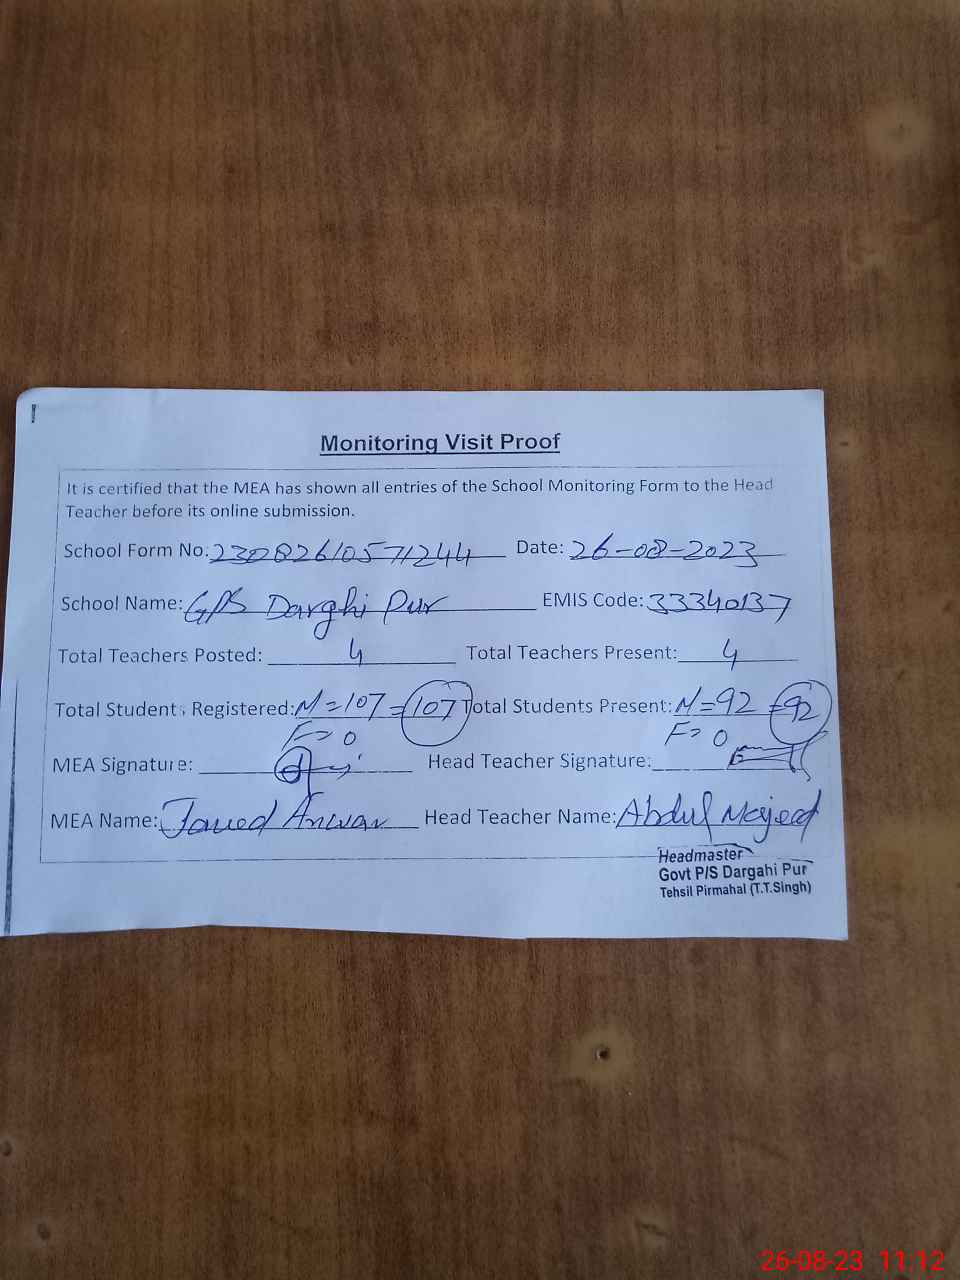 Monitoring Visit Proof
It is certified that the MEA has shown all entries of the School Monitoring Form to the Head
Teacher before its online submission.
School Form No. 23082610571244 Date: 26-08-2023
School Name: GPS Darghi Pur EMIS Code: 33340137
Total Teachers Posted: 4 Total Teachers Present: 4
Total Students Registered: M=107 =107 Total Students Present: M=92 =92
F=0 F=0
MEA Signature: Head Teacher Signature:
MEA Name: Javed Anwar Head Teacher Name: Abdul Majeed
Headmaster
Govt P/S Dargahi Pur
Tehsil Pirmahal (T.T.Singh)
26-08-23 11:12